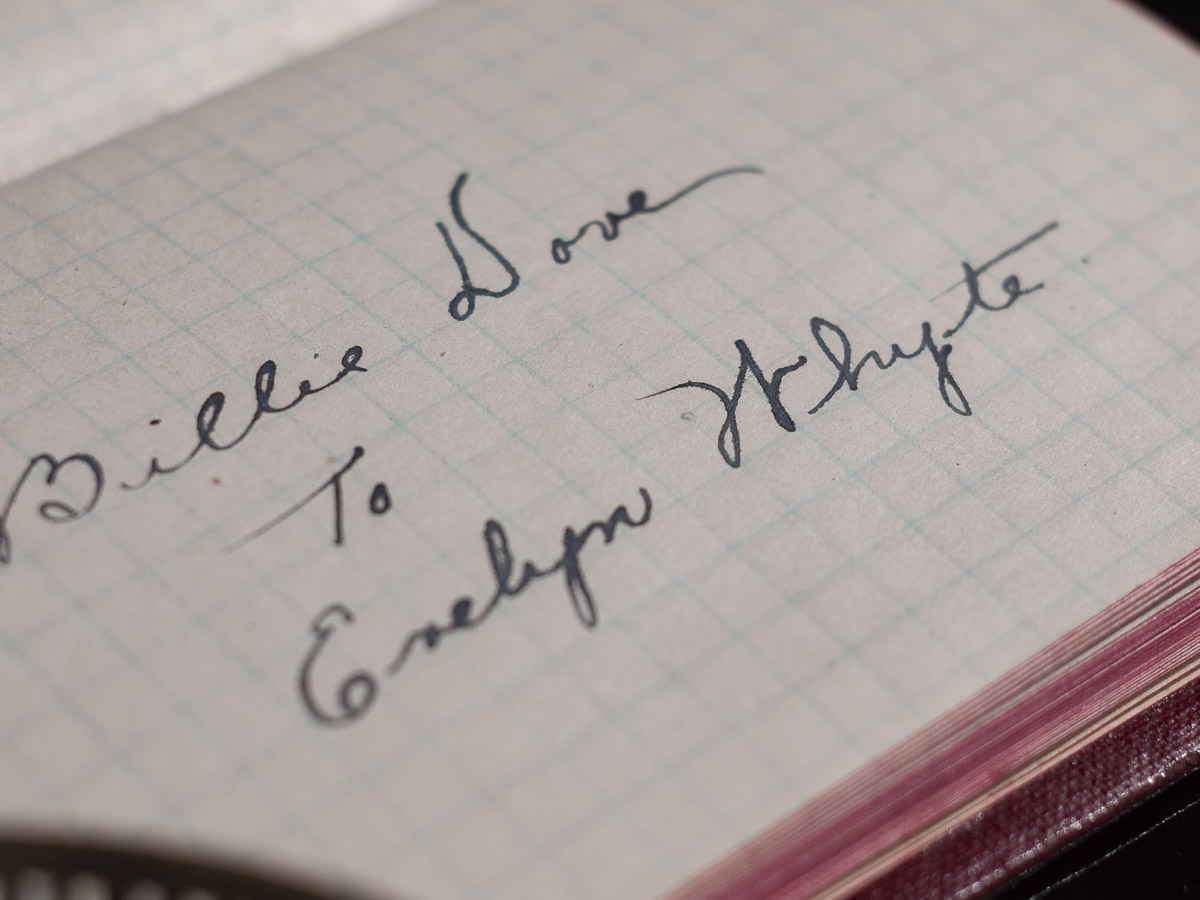 Billie Dove
To
Evelyn Whyte